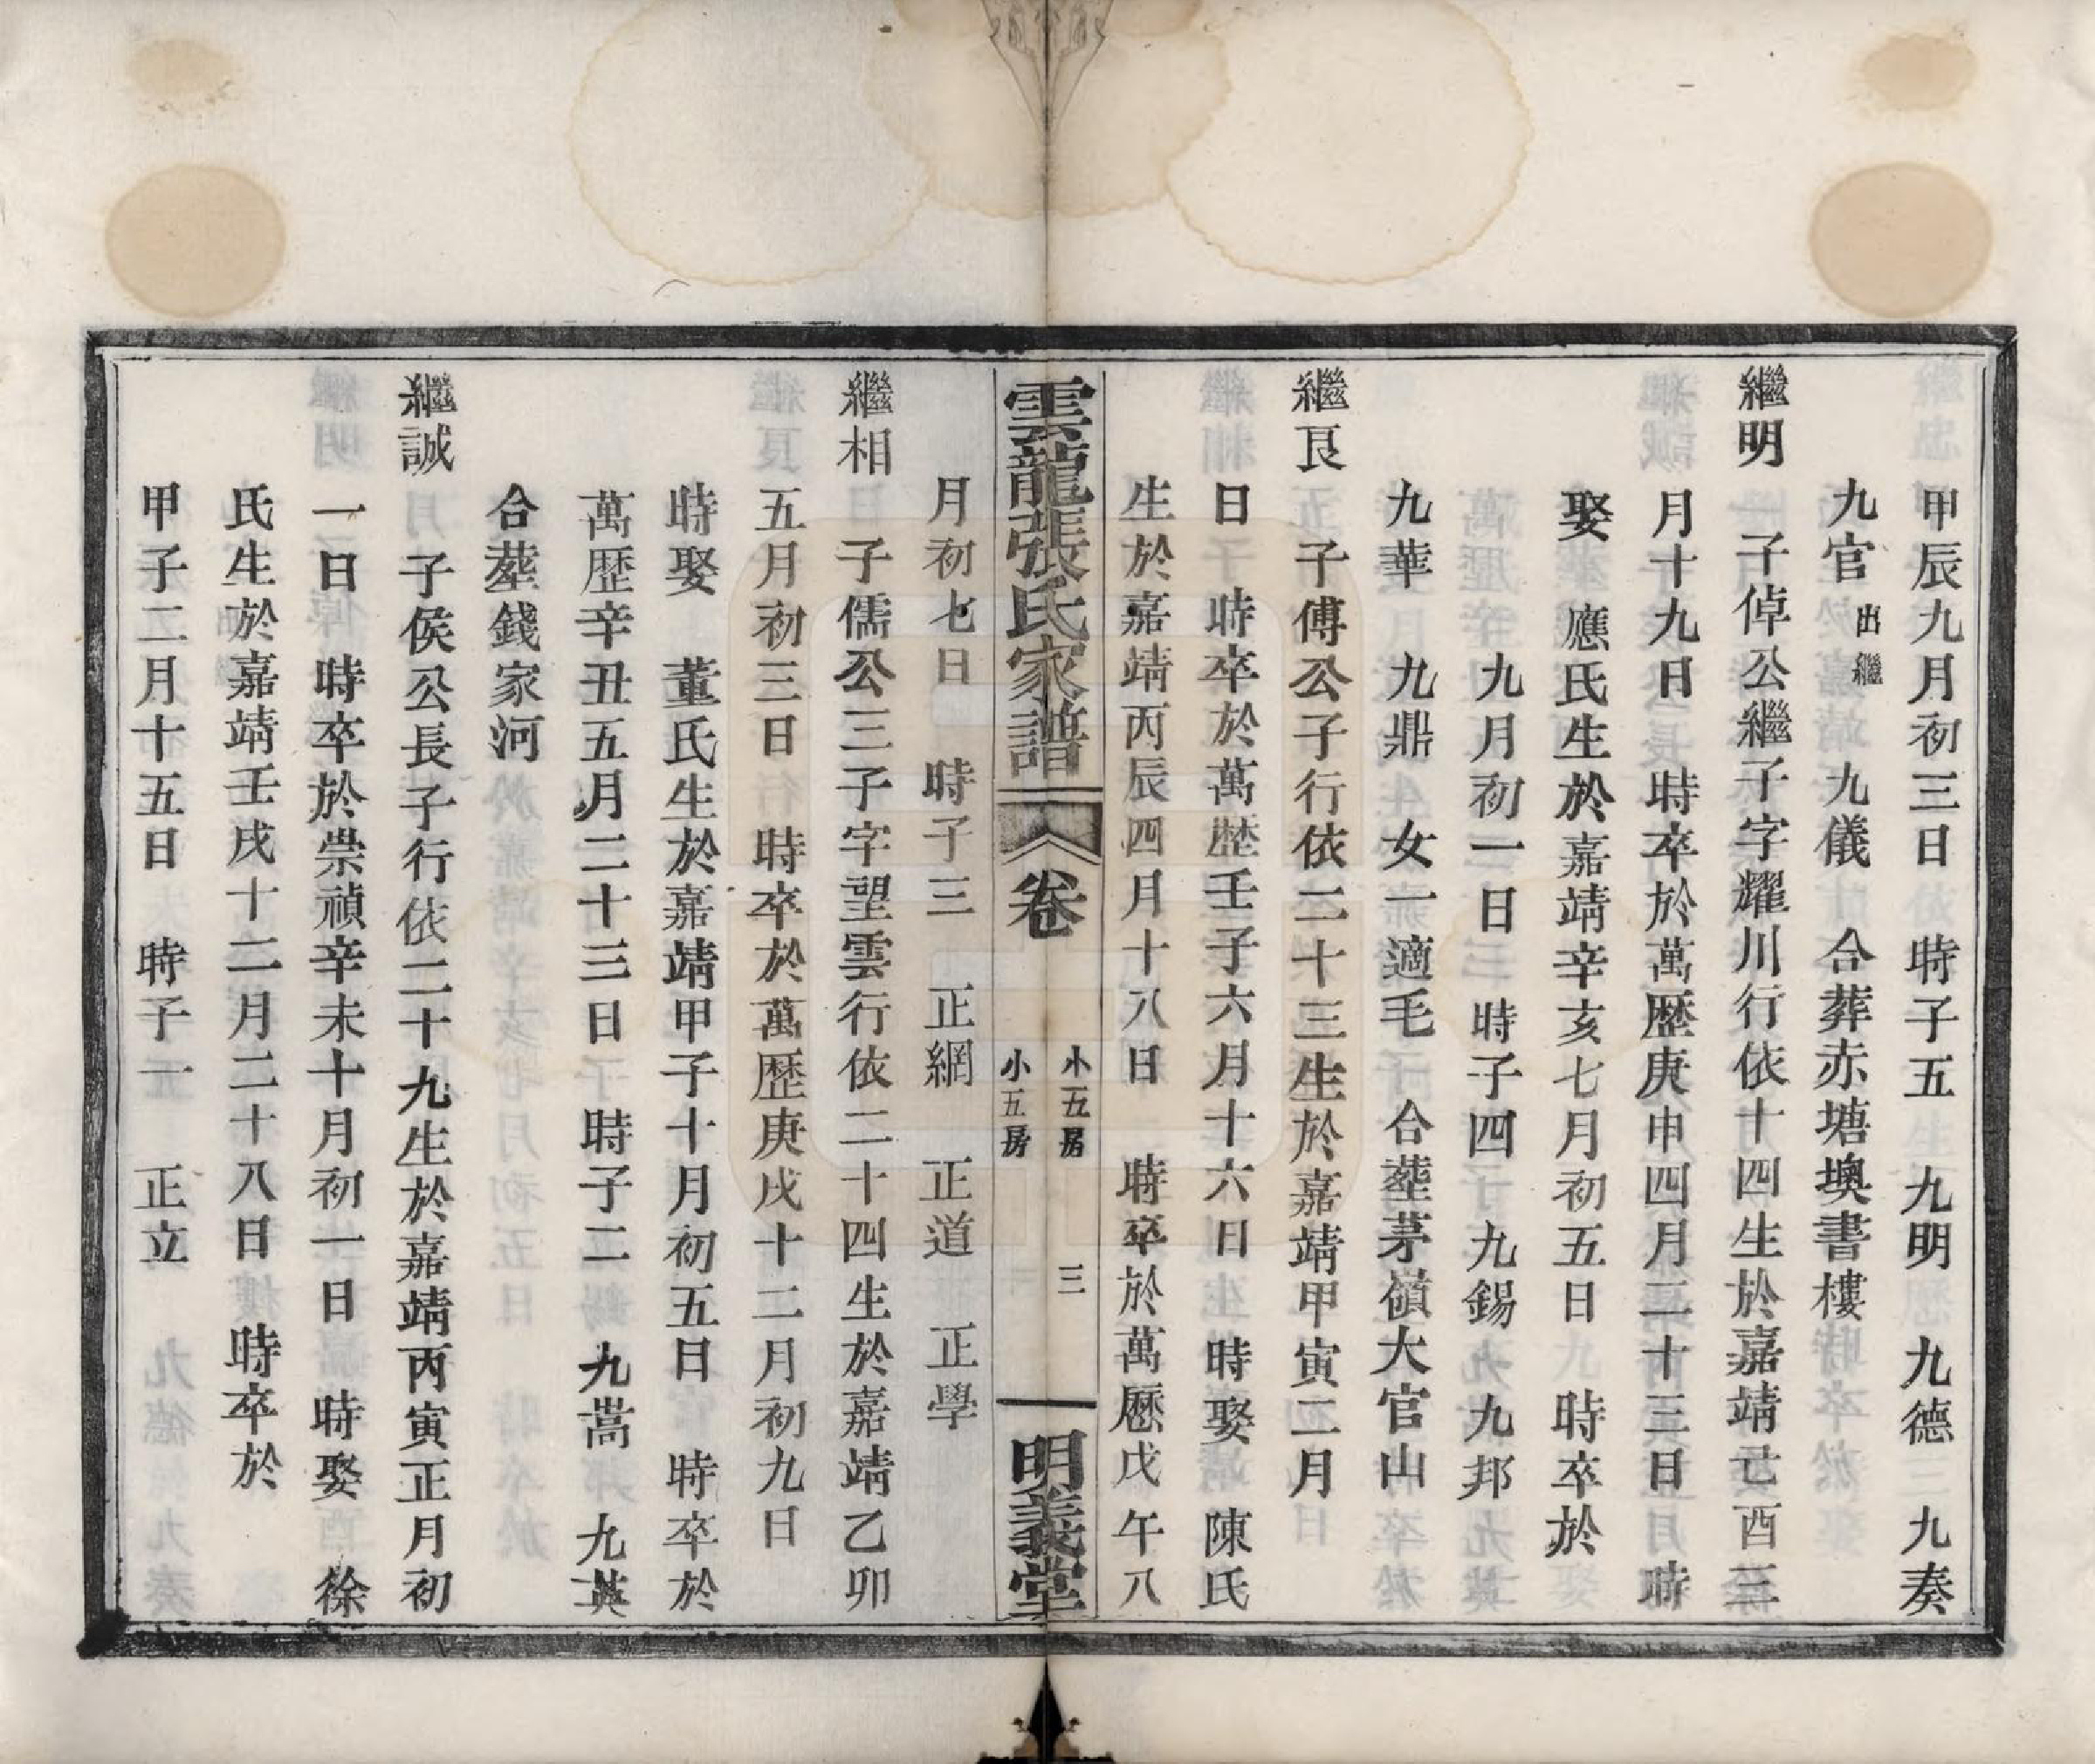 甲辰九月初三日 時子五 九明 九德 九奏
九官出繼 九儀 合葬赤塘墺書樓
繼明 子倬公繼子字耀川行依十四生於嘉靖己酉三
月十九日 時卒於萬歷庚申四月二十三日 時
娶 應氏生於嘉靖辛亥七月初五日 時卒於
九月初一日 時子四 九錫 九邦
九華 九鼎 女一適毛 合塟茅嶺大官山
繼艮 子傅公子行依二十三生於嘉靖甲寅二月
日 時卒於萬歷壬子六月十六日 時娶 陳氏
生於嘉靖丙辰四月十八日 時卒於萬歷戊午八
雲龍張氏家譜 卷 小五房 小五房 三 明義堂
月初七日 時子三 正綱 正道 正學
繼相 子儒公三子字望雲行依二十四生於嘉靖乙卯
五月初三日 時卒於萬歷庚戌十二月初九日
時娶 董氏生於嘉靖甲子十月初五日 時卒於
萬歷辛丑五月二十三日 時子二 九嵩 九英
合塟錢家河
繼誠 子侯公長子行依二十九生於嘉靖丙寅正月初
一日 時卒於崇禎辛未十月初一日 時娶 徐
氏生於嘉靖壬戌十二月二十八日 時卒於
甲子二月十五日 時子一 正立